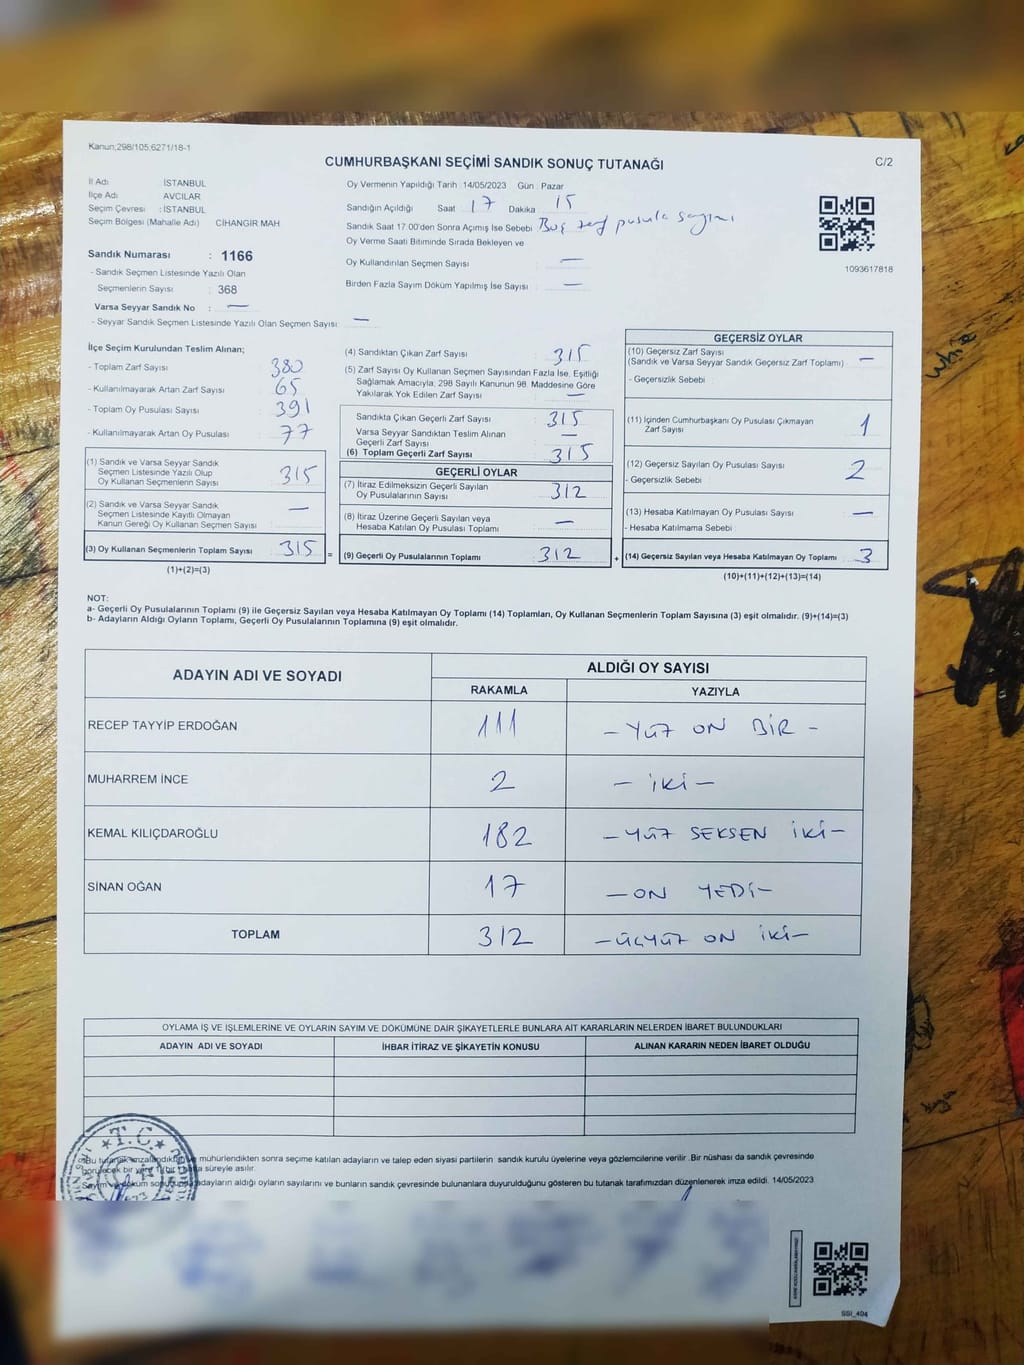 Kanun,298/105,6271/18-1
CUMHURBAŞKANI SEÇİMİ SANDIK SONUÇ TUTANAĞI
C/2
İl Adı İSTANBUL
İlçe Adı AVCILAR
Seçim Çevresi : İSTANBUL
Seçim Bölgesi (Mahalle Adı) CİHANGİR MAH
Sandık Numarası : 1166
- Sandık Seçmen Listesinde Yazılı Olan
Seçmenlerin Sayısı : 368
Varsa Seyyar Sandık No : —
- Seyyar Sandık Seçmen Listesinde Yazılı Olan Seçmen Sayısı —
Oy Vermenin Yapıldığı Tarih : 14/05/2023 Gün : Pazar
Sandığın Açıldığı Saat 17 Dakika 15
Sandık Saat 17.00'den Sonra Açımış İse Sebebi Boş zarf pusula sayımı
Oy Verme Saati Bitiminde Sırada Bekleyen ve
Oy Kullandırılan Seçmen Sayısı : —
Birden Fazla Sayım Döküm Yapılmış İse Sayısı : —
1093617818
İlçe Seçim Kurulundan Teslim Alınan;
- Toplam Zarf Sayısı : 380
- Kullanılmayarak Artan Zarf Sayısı : 65
- Toplam Oy Pusulası Sayısı : 391
- Kullanılmayarak Artan Oy Pusulası : 77
(1) Sandık ve Varsa Seyyar Sandık
Seçmen Listesinde Yazılı Olup
Oy Kullanan Seçmenlerin Sayısı : 315
(2) Sandık ve Varsa Seyyar Sandık
Seçmen Listesinde Kayıtlı Olmayan
Kanun Gereği Oy Kullanan Seçmen Sayısı : —
(3) Oy Kullanan Seçmenlerin Toplam Sayısı 315 =
(1)+(2)=(3)
(4) Sandıktan Çıkan Zarf Sayısı : 315
(5) Zarf Sayısı Oy Kullanan Seçmen Sayısından Fazla İse, Eşitliği
Sağlamak Amacıyla, 298 Sayılı Kanunun 98. Maddesine Göre
Yakılarak Yok Edilen Zarf Sayısı : —
Sandıkta Çıkan Geçerli Zarf Sayısı : 315
Varsa Seyyar Sandıktan Teslim Alınan
Geçerli Zarf Sayısı : —
(6) Toplam Geçerli Zarf Sayısı : 315
GEÇERLİ OYLAR
(7) İtiraz Edilmeksizin Geçerli Sayılan
Oy Pusulalarının Sayısı : 312
(8) İtiraz Üzerine Geçerli Sayılan veya
Hesaba Katılan Oy Pusulası Toplamı : —
(9) Geçerli Oy Pusulalarının Toplamı : 312 +
GEÇERSİZ OYLAR
(10) Geçersiz Zarf Sayısı
(Sandık ve Varsa Seyyar Sandık Geçersiz Zarf Toplamı) : —
- Geçersizlik Sebebi
(11) İçinden Cumhurbaşkanı Oy Pusulası Çıkmayan
Zarf Sayısı 1
(12) Geçersiz Sayılan Oy Pusulası Sayısı : 2
- Geçersizlik Sebebi
(13) Hesaba Katılmayan Oy Pusulası Sayısı : —
- Hesaba Katılmama Sebebi :
(14) Geçersiz Sayılan veya Hesaba Katılmayan Oy Toplamı : 3
(10)+(11)+(12)+(13)=(14)
NOT:
a- Geçerli Oy Pusulalarının Toplamı (9) ile Geçersiz Sayılan veya Hesaba Katılmayan Oy Toplamı (14) Toplamları, Oy Kullanan Seçmenlerin Toplam Sayısına (3) eşit olmalıdır. (9)+(14)=(3)
b- Adayların Aldığı Oyların Toplamı, Geçerli Oy Pusulalarının Toplamına (9) eşit olmalıdır.
ADAYIN ADI VE SOYADI
ALDIĞI OY SAYISI
RAKAMLA YAZIYLA
RECEP TAYYİP ERDOĞAN 111 - YÜZ ON BİR -
MUHARREM İNCE 2 - İKİ -
KEMAL KILIÇDAROĞLU 182 - YÜZ SEKSEN İKİ -
SİNAN OĞAN 17 - ON YEDİ -
TOPLAM 312 - ÜÇYÜZ ON İKİ -
OYLAMA İŞ VE İŞLEMLERİNE VE OYLARIN SAYIM VE DÖKÜMÜNE DAİR ŞİKAYETLERLE BUNLARA AİT KARARLARIN NELERDEN İBARET BULUNDUKLARI
ADAYIN ADI VE SOYADI İHBAR İTİRAZ VE ŞİKAYETİN KONUSU ALINAN KARARIN NEDEN İBARET OLDUĞU
T.C.
mühürlendikten sonra seçime katılan adayların ve talep eden siyasi partilerin sandık kurulu üyelerine veya gözlemcilerine verilir .Bir nüshası da sandık çevresinde
süreyle asılır.
adayların aldığı oyların sayılarını ve bunların sandık çevresinde bulunanlara duyurulduğunu gösteren bu tutanak tarafımızdan düzenlenerek imza edildi. 14/05/2023
SSI_404
while